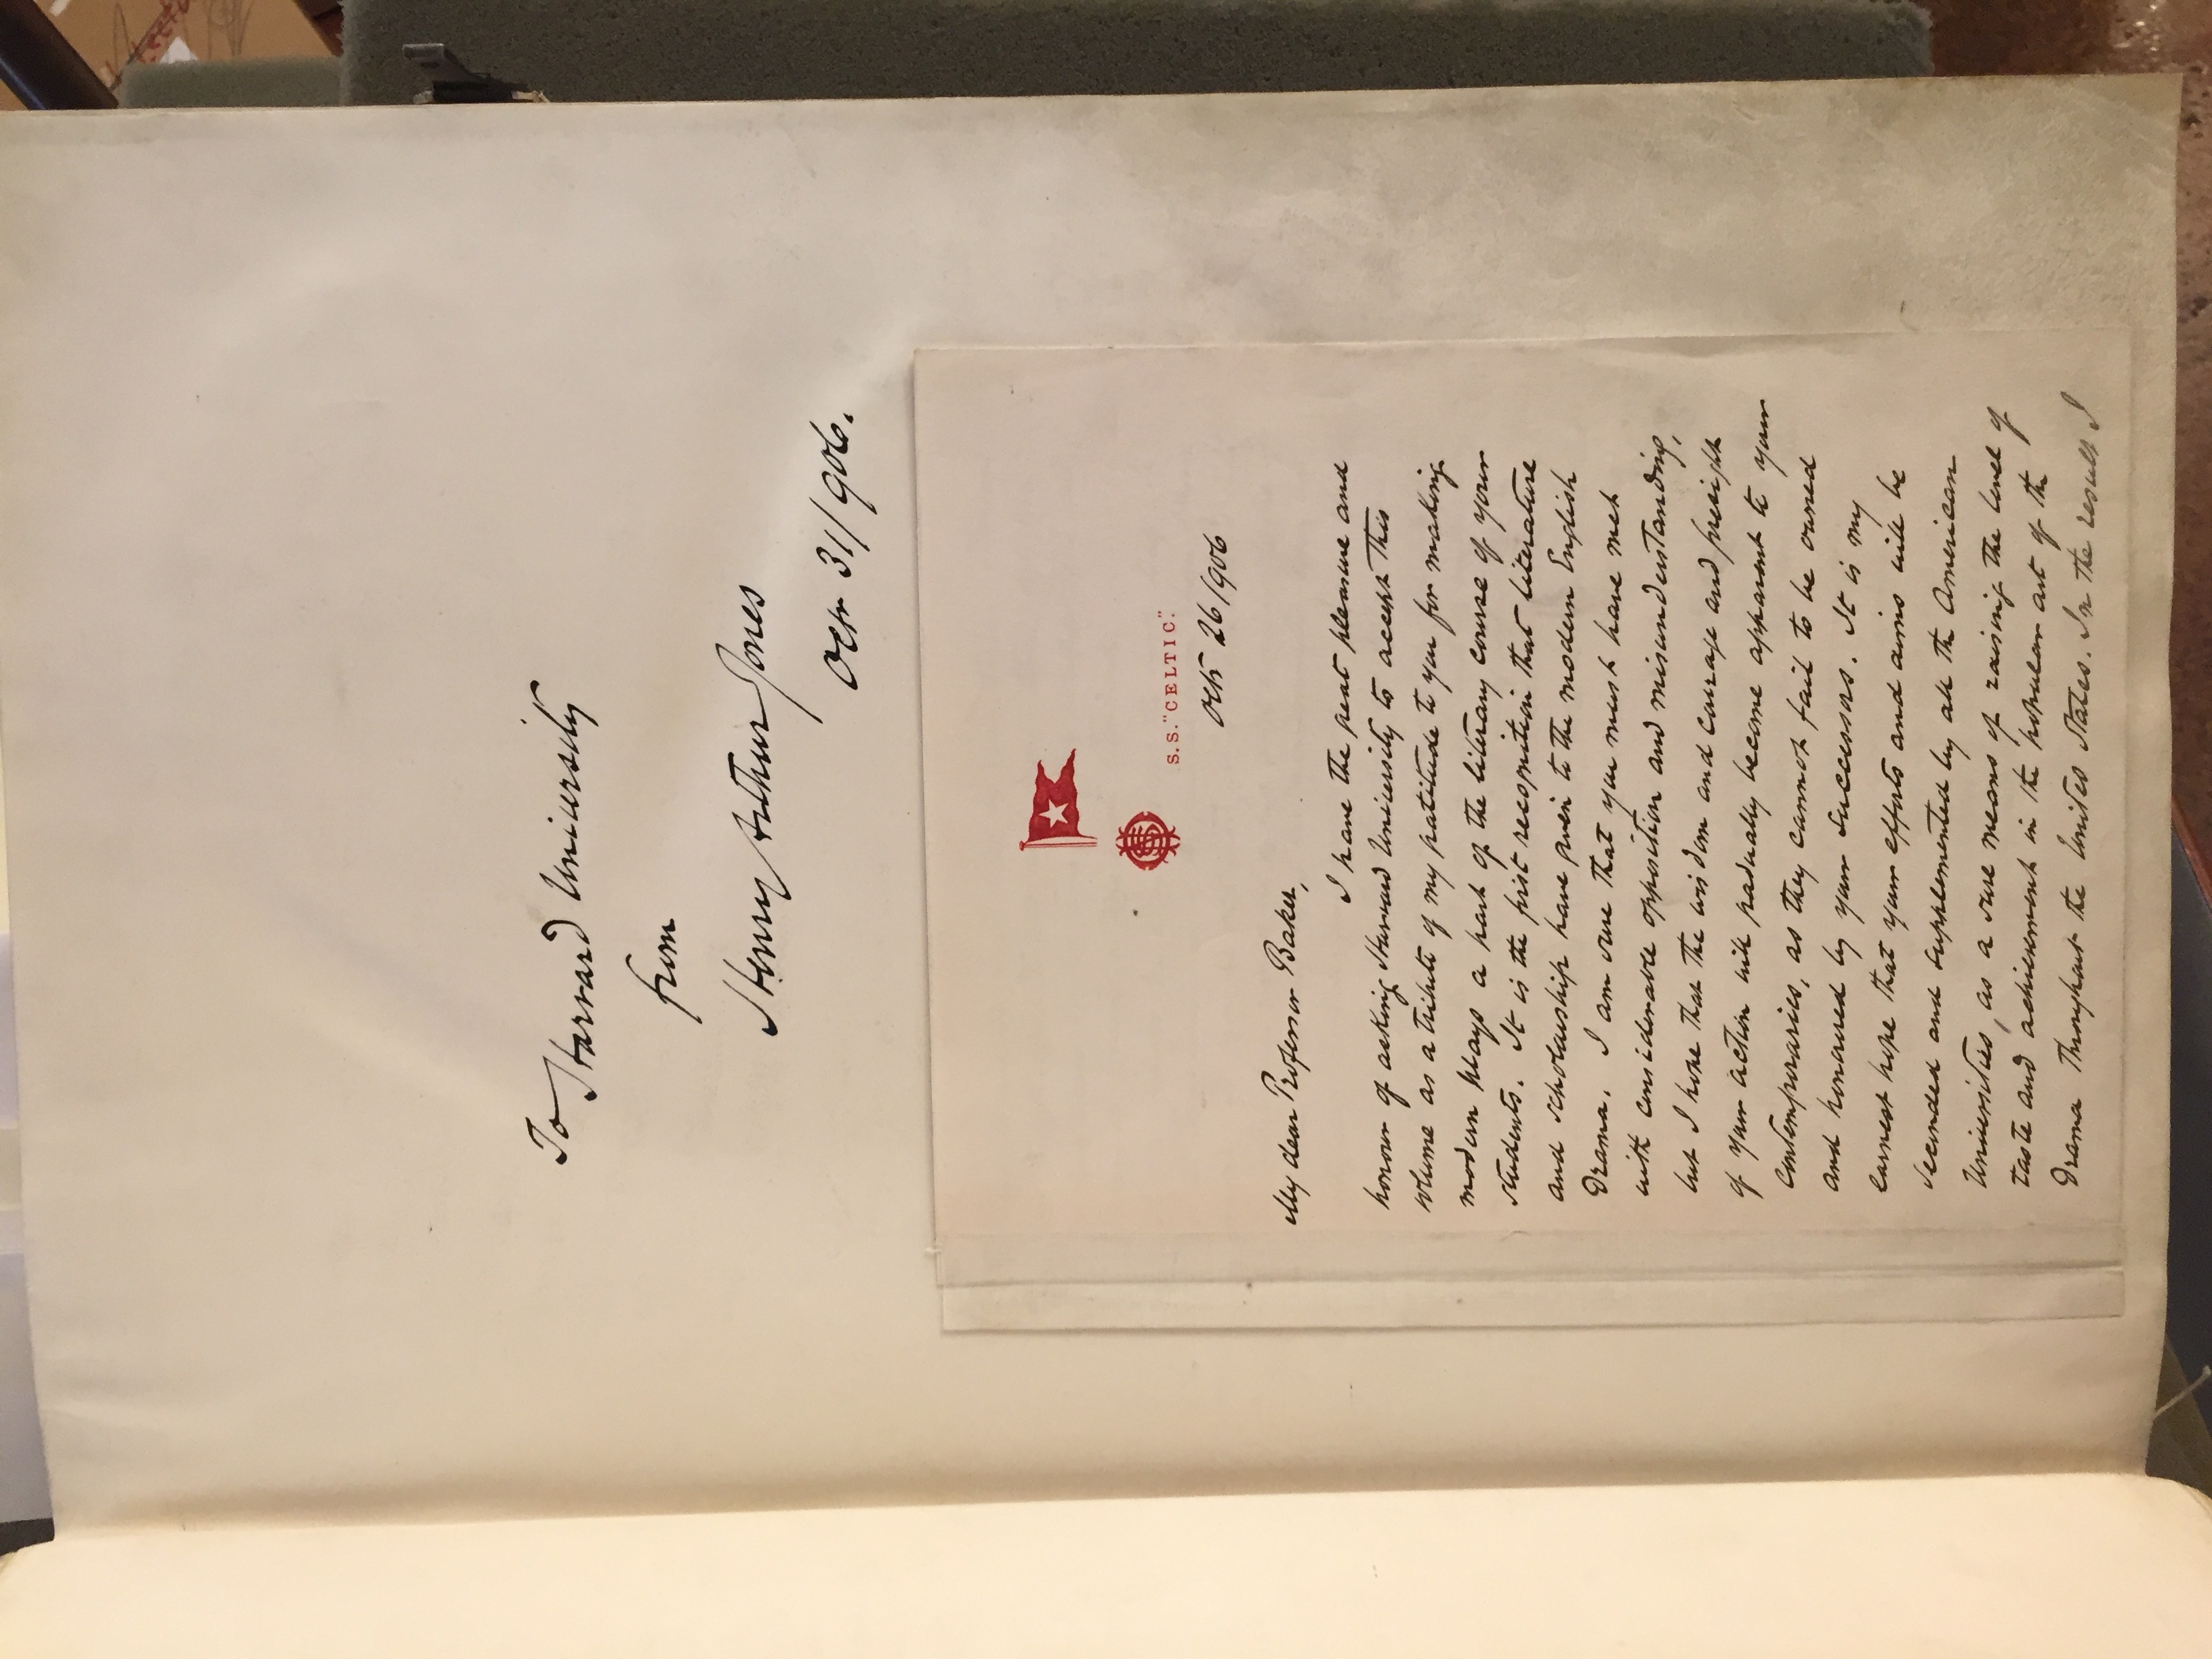 To Harvard University
from
Henry Arthur Jones
Octr 31/906.
S.S. "CELTIC".
Oct 26/906
My dear Professor Baker,
I have the great pleasure and
honour of asking Harvard University to accept this
volume as a tribute of my gratitude to you for making
modern plays a part of the literary course of your
students. It is the first recognition that literature
and scholarship have given to the modern English
Drama. I am sure that you must have met
with considerable opposition and misunderstanding,
but I hope that the wisdom and courage and foresight
of your action will gradually become apparent to your
contemporaries, as they cannot fail to be owned
and honoured by your successors. It is my
earnest hope that your efforts and aims will be
seconded and supplemented by all the American
Universities, as a sure means of raising the level of
taste and achievement in the popular art of the
Drama throughout the United States. In the result I